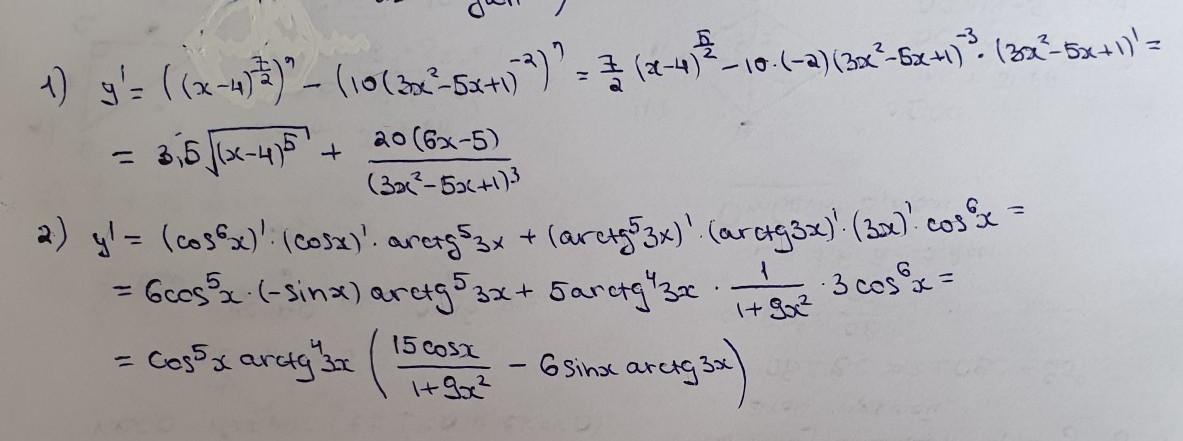 1) y' = ((x-4)^{7/2})' - (10(3x²-5x+1)^{-2})' = 7/2 (x-4)^{5/2} - 10·(-2)(3x²-5x+1)^{-3}·(3x²-5x+1)' =
= 3,5√((x-4)⁵) + 20(6x-5)/(3x²-5x+1)³
2) y' = (cos⁶x)'·(cosx)'·arctg⁵3x + (arctg⁵3x)'·(arctg3x)'·(3x)'·cos⁶x =
= 6cos⁵x·(-sinx) arctg⁵3x + 5arctg⁴3x · 1/(1+9x²) · 3cos⁶x =
= cos⁵x arctg⁴3x (15cosx/(1+9x²) - 6sinx arctg3x)